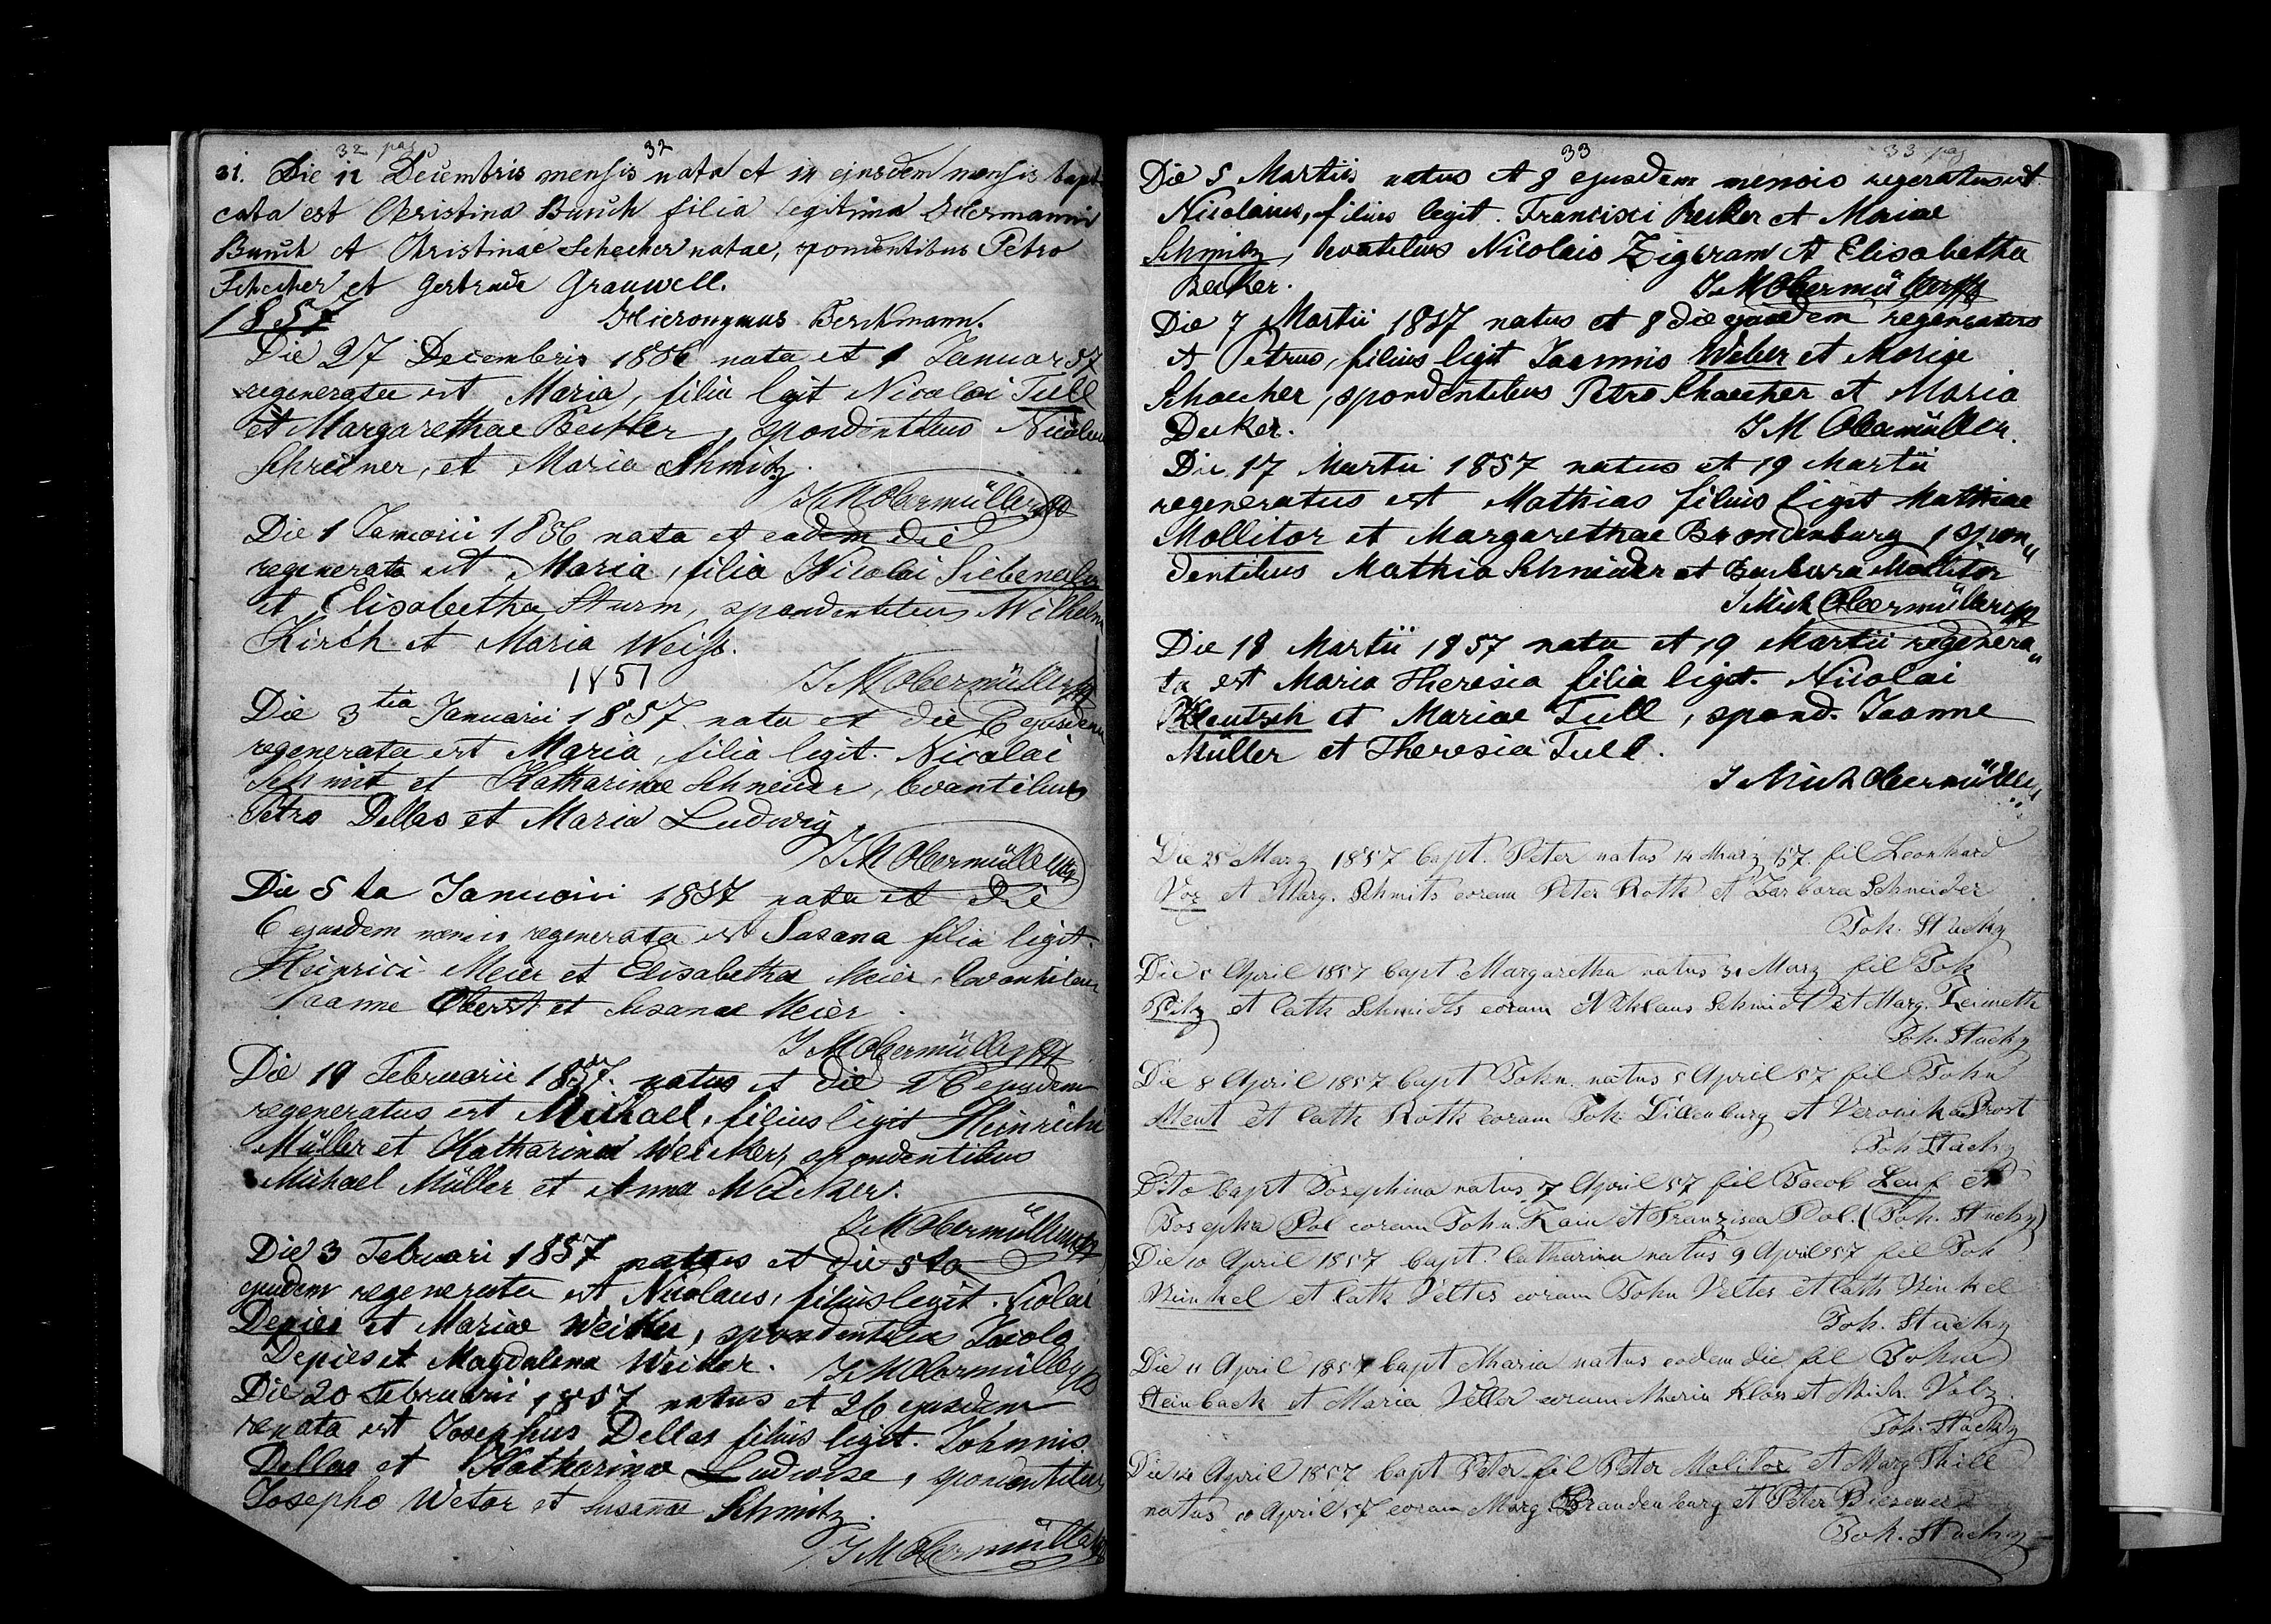 32 pag 32
31. Die 12 Decembris mensis nata et 14 ejusdem mensis bapt-
cata est Christina Bunch filia legitima Hermanni
Bunch et Christinae Schecher natae, spondentibus Petro
Schecher et Gertrude Grauwell.
1857 Hieronymus Berckmann.
Die 27 Decembris 1856 nata et 1 Januar 57
regenerata est Maria, filia legit Nicolai Tull
et Margarethae Becker, spondentibus Nicolau
Schreiner, et Maria Schmitz.
J M Obermüller
Die 1 Januarii 1856 nata et eadem die
regenerata est Maria, filia Nicolai Siebenaler
et Elisabetha Sturm, spondentibus Wilhelm
Kirch et Maria Weiss.
1857 J M Obermüller
Die 3tia Januarii 1857 nata et die 6 ejusdem
regenerata est Maria, filia legit. Nicolai
Schmit et Katharinae Schneider, levantibus
Petro Dellas et Maria Ludwig
J M Obermüller
Die 5 ta Januarii 1857 nata et die
6 ejusdem mensis regenerata est Susana filia legit.
Heinrici Meier et Elisabetha Meier, levantibus
Joanne Oberst et Susanae Meier.
J M Obermüller
Die 19 Februarii 1857. natus et die ejusdem
regeneratus est Michael, filius legit Heinrichi
Müller et Katharina Weicker, spondentibus
Michael Müller et Anna Weicker.
J M Obermüller
Die 3 Februari 1857 natus et die 5 ta
ejusdem regenerata est Nicolaus, filius legit. Nicolai
Depies et Mariae Weicker, spondentibus Jacolo
Depies et Magdalena Weiker. J M Obermüller
Die 20 Februarii 1857 natus et 26 ejusdem
renata est Josephus Dellas filius legit. Johannis
Dellas et Katharina Ludwise, spondentibus
Josepho Wetor et Susanae Schmitz.
J M Obermüller
33 33 pag
Die 5 Martii natus et 8 ejusdem mensis regeratus est
Nicolaus, filius legit. Francisci Becker et Mariae
Schmitz, levatibus Nicolais Zigram et Elisabetha
Becker. J M Obermüller
Die 7 Martii 1857 natus et 8 die ejusdem regeneratus
et Petrus, filius legit Joannis Weber et Mariae
Schaecher, spondentibus Petro Schaecher et Maria
Decker. J M Obermüller.
Die 17 Martii 1857 natus et 19 Martii
regeneratus est Mathias filius legit Mathiae
Mollitor et Margarethae Brandenburg, spon„
dentibus Mathia Schneider et Barbara Mollitor
J Mich Obermüller
Die 18 Martii 1857 nata et 19 Martii regenera„
ta est Maria Theresia filia legit. Nicolai
Kleutsch et Mariae Tull, spond. Joanne
Müller et Theresia Tull.
J Mich Obermüller
Die 25 Marz 1857 bapt. Peter natus 14 Marz 57. fil Leonhard
Voz et Marg. Schmits coram Peter Roth et Barbara Schneider
Joh. Stucky
Die 5 April 1857 bapt Margaretha natus 31 Marz fil Joh
Pitz et Cath Schmidts coram Niklaus Schmidt et Marg. Reimeth
Joh. Stucky
Die 8 April 1857 bapt John. natus 5 April 57 fil John
Ment et Cath Roth coram Joh. Dillenburg et Veronika Prost
Joh Stucky
Dito bapt Josephina natus 7 April 57 fil Jacob Leuf et
Josepha Pol coram John. Kain et Franzisca Pol. (Joh. Stucky)
Die 10 April 1857 bapt. Catharina natus 9 April 57 fil Joh
Weinkel et Cath Veltes coram John Veltes et Cath Weinkel
Joh. Stucky
Die 11 April 1857 bapt Maria natus eodem die fil John
Steinback et Maria Veller coram Maria Klas et Mich. Volz.
Joh. Stucky
Die 14 April 1857 bapt Peter fil Peter Molitor et Marg Thill
natus 10 April 57 coram Marg Brandenburg et Peter Biesener
Joh. Stucky